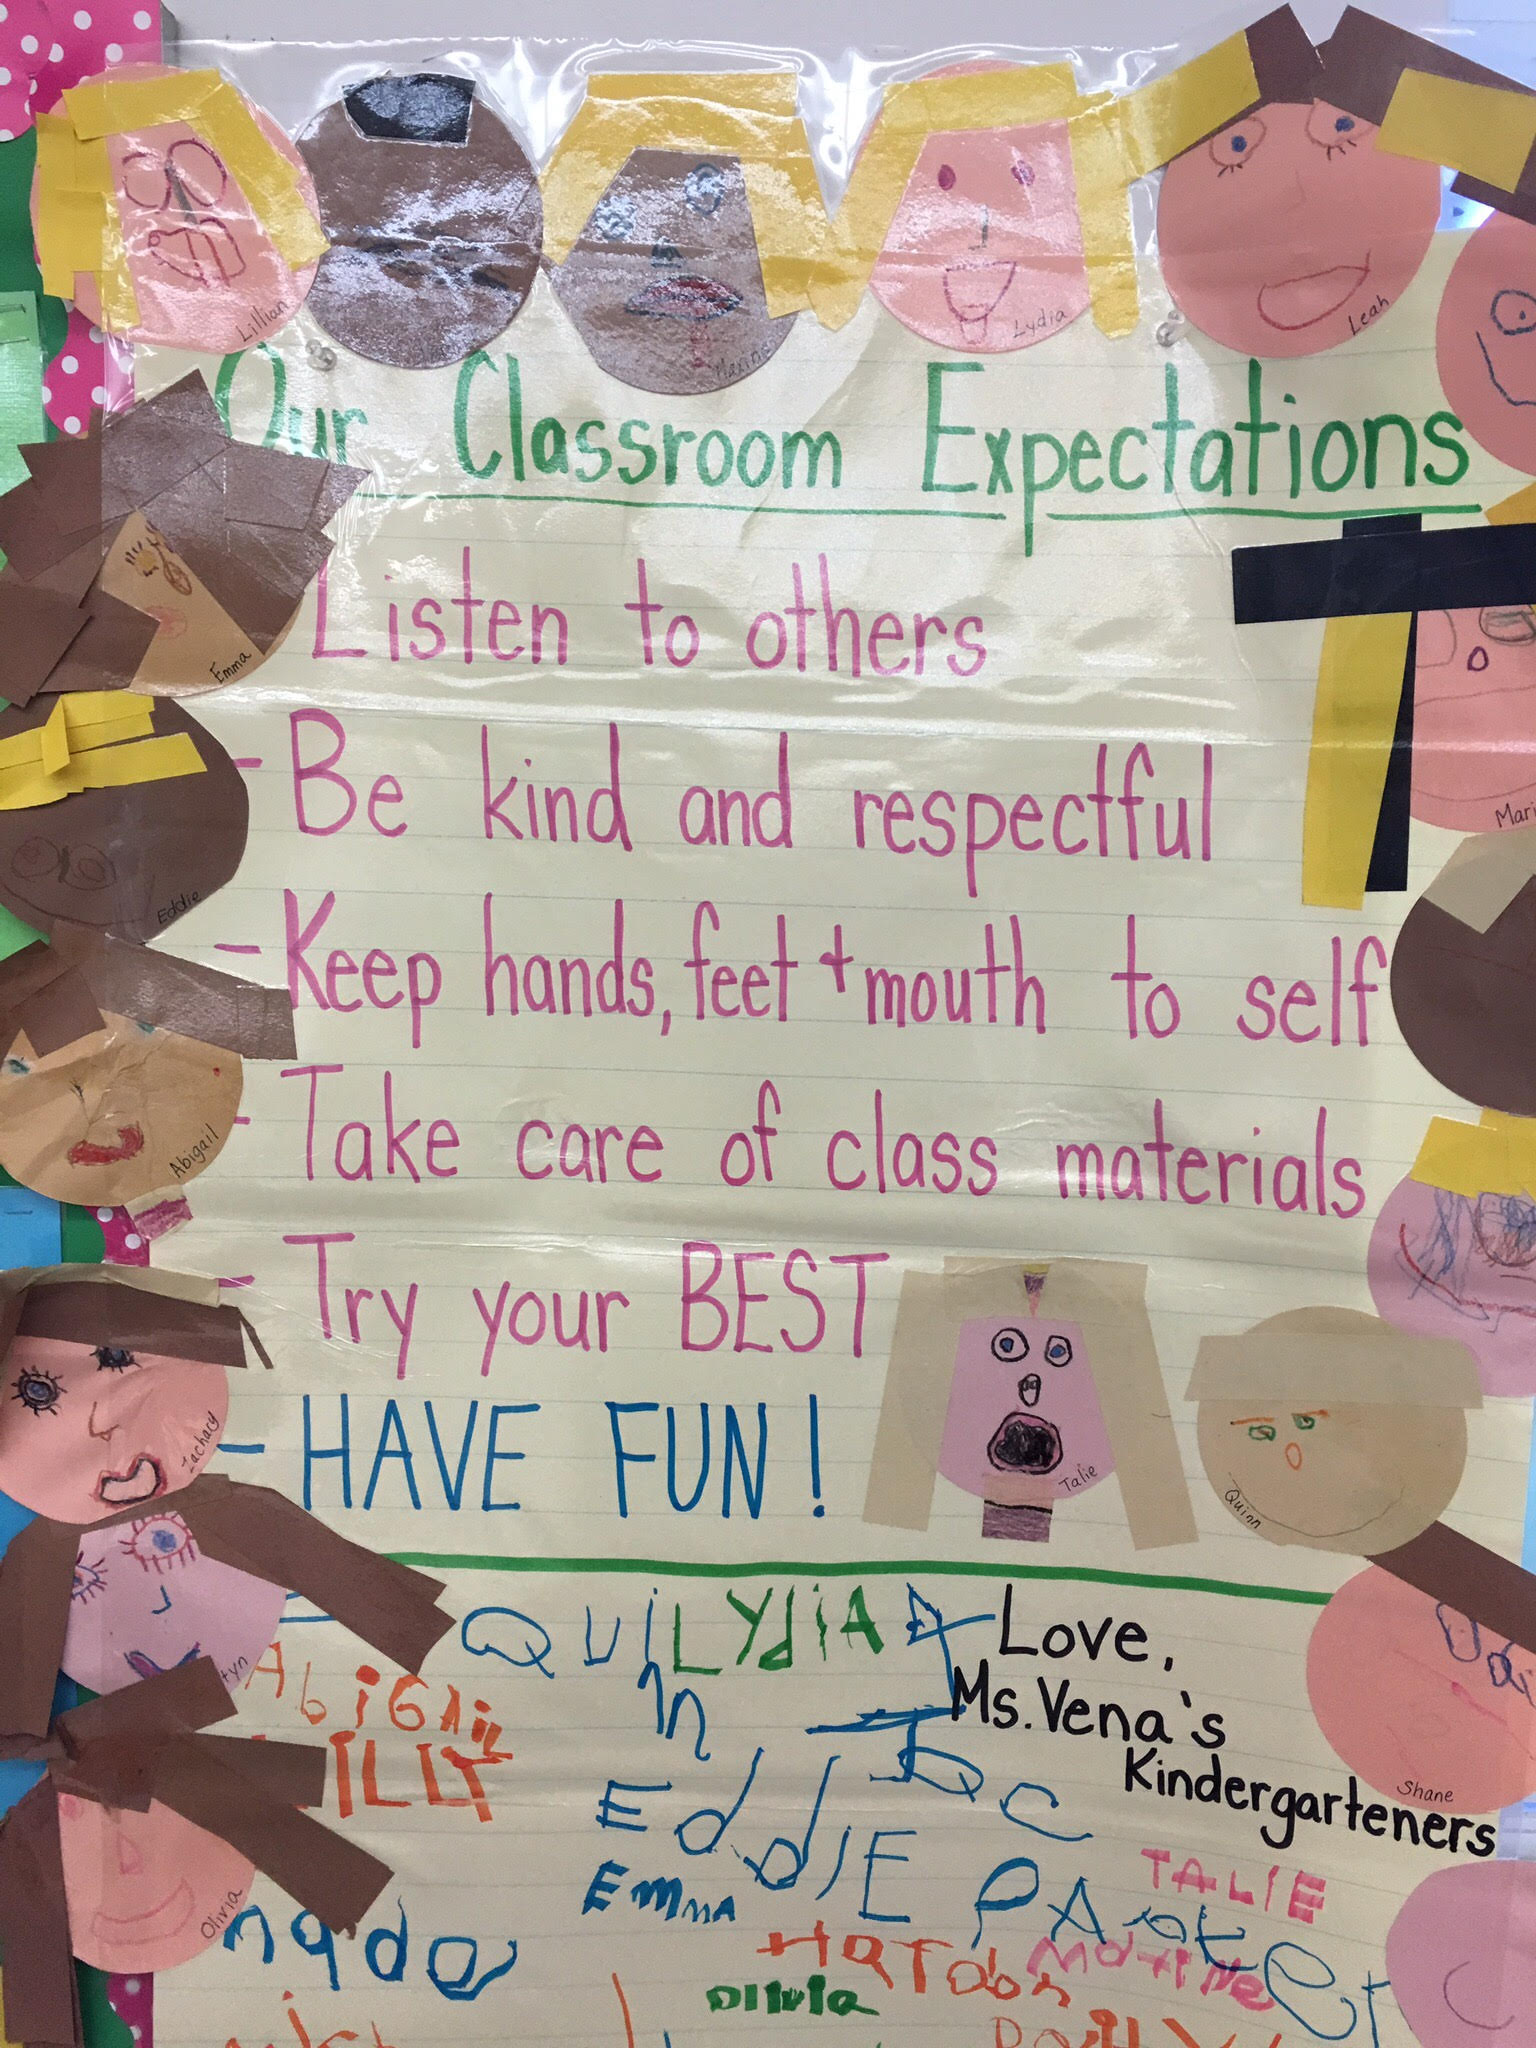 Lillian
Maxine
Lydia
Leah
Our Classroom Expectations
Listen to others
Emma
- Be kind and respectful
Eddie
- Keep hands, feet + mouth to self
Abigail
- Take care of class materials
- Try your BEST
Zachary
- HAVE FUN!
Talie
Quinn
QUinn
LYdiA
Love,
Ms. Vena's
Kindergarteners
AbiGAil
Shane
EddIE
Olivia
EmmA
TALIE
Maxine
olivia